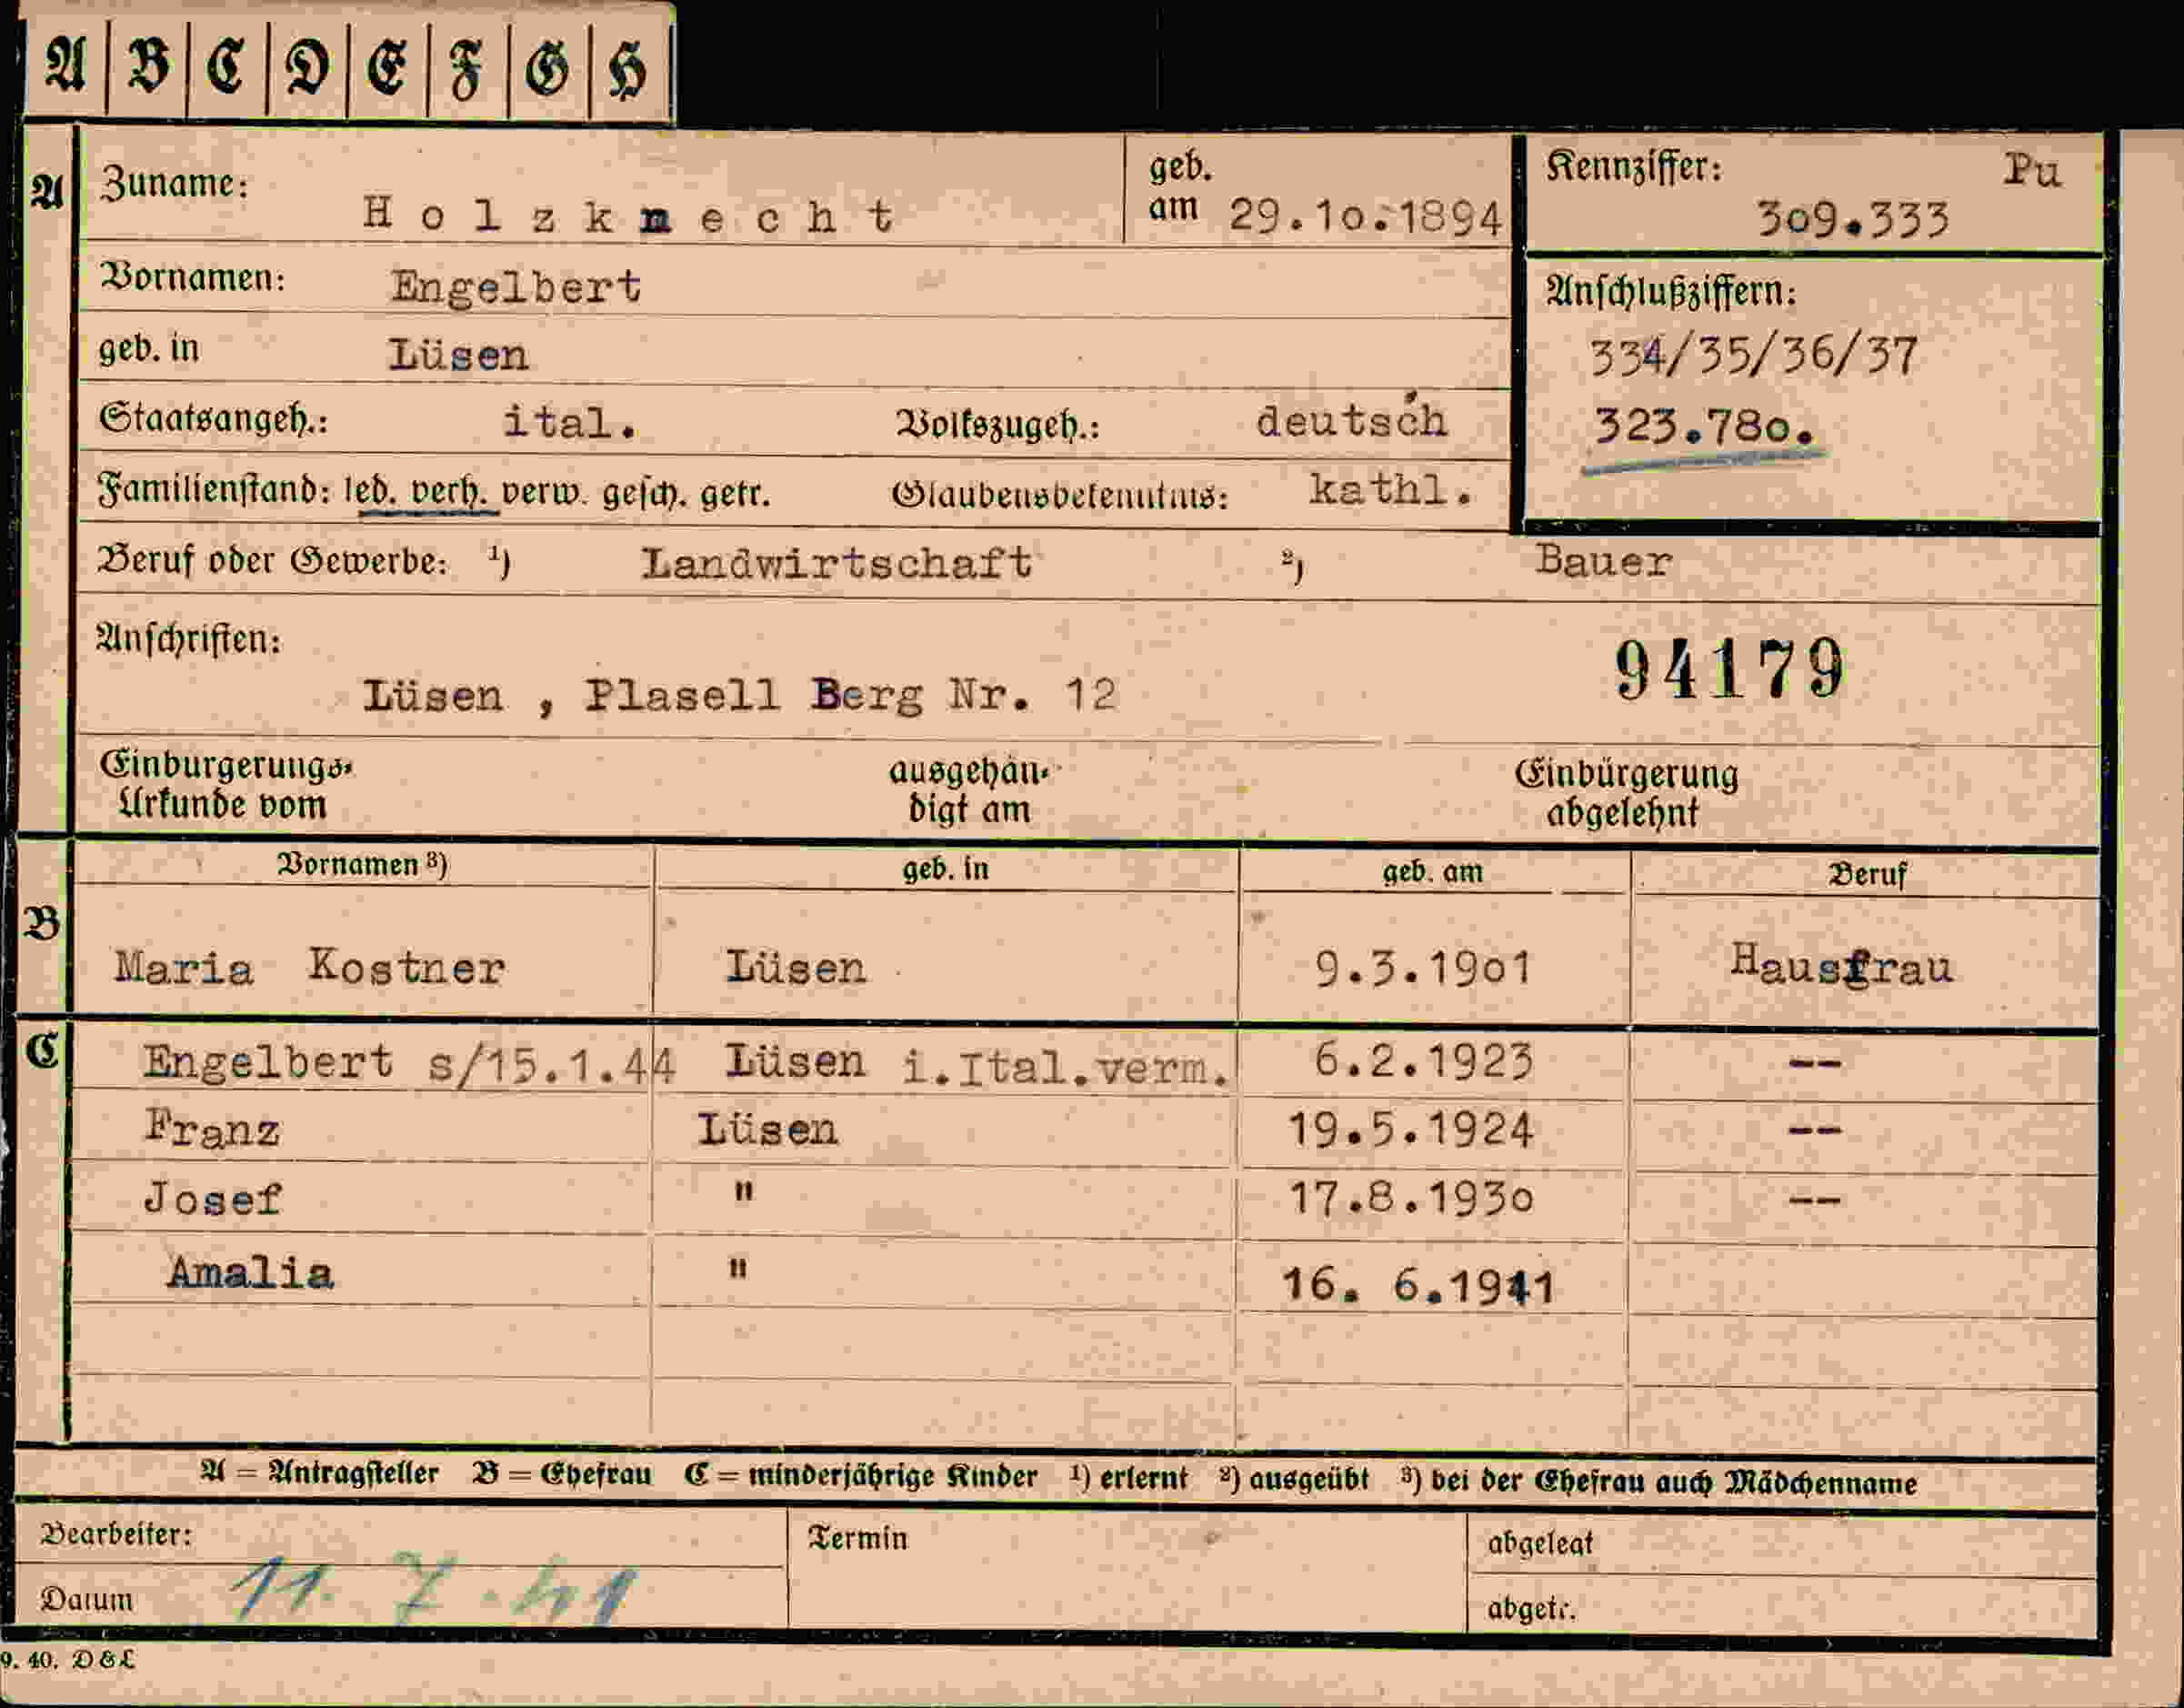 A B C D E F G H
A Zuname: Holzknecht geb. am 29.10.1894 Kennziffer: Pu 309.333
Vornamen: Engelbert Anschlußziffern:
geb. in Lüsen 334/35/36/37
Staatsangeh.: ital. Volkszugeh.: deutsch 323.780.
Familienstand: led. verh. verw. gesch. getr. Glaubensbekenntnis: kathl.
Beruf oder Gewerbe: ¹) Landwirtschaft ²) Bauer
Anschriften: 94179
Lüsen , Plasell Berg Nr. 12
Einbürgerungs- ausgehän- Einbürgerung
Urkunde vom digt am abgelehnt
Vornamen ³) geb. in geb. am Beruf
B Maria Kostner Lüsen 9.3.1901 Hausfrau
C Engelbert s/15.1.44 Lüsen i.Ital.verm. 6.2.1923 --
Franz Lüsen 19.5.1924 --
Josef " 17.8.1930 --
Amalia " 16. 6.1941
A = Antragsteller B = Ehefrau C = minderjährige Kinder ¹) erlernt ²) ausgeübt ³) bei der Ehefrau auch Mädchenname
Bearbeiter: Termin abgelegt
Datum 11. 7. 41 abgetr.
9. 40. D & L